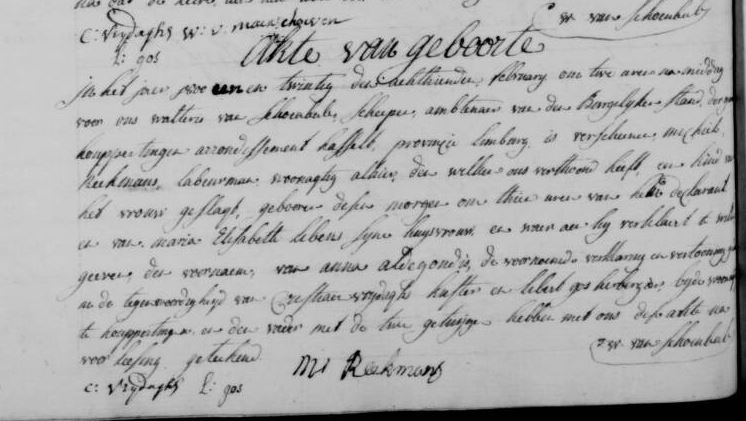 C: Vrydaghs W: v: maenschoeven
w van Schoenbeek
L: gos
Akte van geboorte
in het jaer een en twintig den achthienden february om twe uren na middag
voor ons walterus van Schoenbeek, Schepen, ambtenaer van den Borgelyken Stand der gem
houppertingen arrondissement hasselt, provincie limburg is verschenen, michiel
Reekmans, labeurman, woonagtig alhier, den welken ons verthoond heeft, een kind van
het vrouw geslagt, geboren desen morgen om thien uren van hem declarant
en van maria Elisabeth lebens syne huysvrouw, en waer aen hy verklaert te willen
geeven, den voornaem, van anna aldegondis, de voornoemde verklaring en vertooning
in de tegenwoordigheyd van Cristiaen vrydaghs kuster en libert gos herbergier, beyde woonagtig
te houppertingen, en den vader met de twee getuygen hebben met ons desen akte na
voorleesing geteekend
w van Schoenbeek
M: Reekmans
C: Vrydaghs L: gos